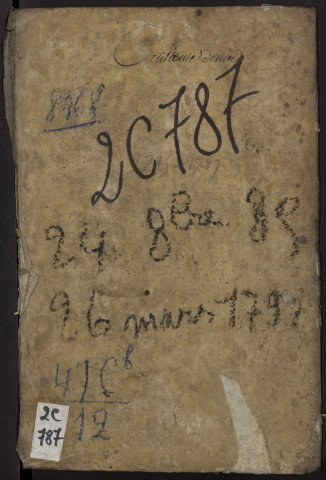 8468
2C787
24 8Bre 89
26 mars 179
47C
12
2C
787